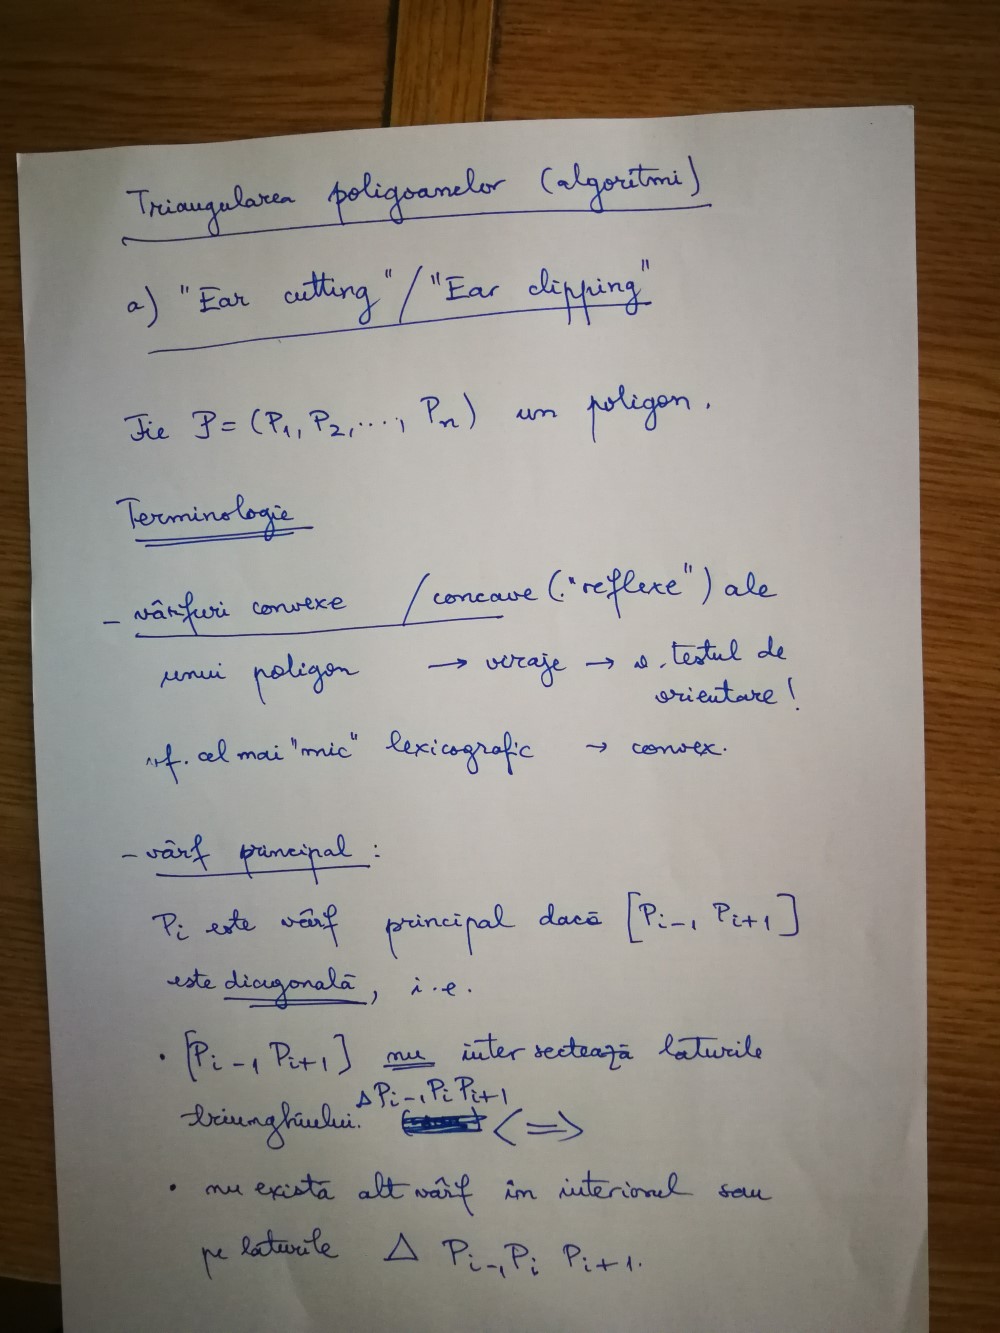 Triangularea poligoanelor (algoritmi)
a) "Ear cutting" / "Ear clipping"
Fie P = (P₁, P₂, ..., Pₙ) un poligon.
Terminologie
- vârfuri convexe / concave ("reflexe") ale
unui poligon → viraje → v. testul de
orientare!
vf. cel mai "mic" lexicografic → convex.
- vârf principal :
Pi este vârf principal dacă [Pi-1 Pi+1]
este diagonală, i.e.
• [Pi-1 Pi+1] nu intersectează laturile
triunghiului. Δ Pi-1 Pi Pi+1 <=>
• nu există alt vârf în interiorul sau
pe laturile Δ Pi-1 Pi Pi+1.